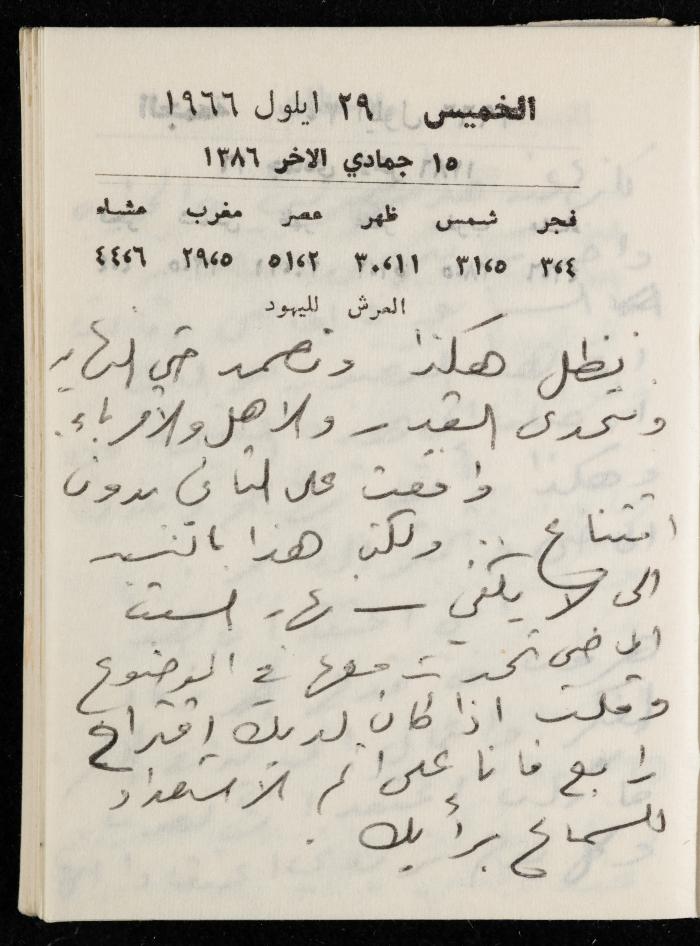 الخميس ٢٩ ايلول ١٩٦٦
١٥ جمادي الاخر ١٣٨٦
فجر شمس ظهر عصر مغرب عشاء
٣،٤ ٣١،٥ ٣٠،١١ ٥١،٢ ٢٩،٥ ٤٤،٦
العرش لليهود
نظل هكذا ونصمد حتى النهاية
ونتحدى القدر والاهل والأقرباء.
وافقت على الثاني بدون
اقتناع .. ولكن هذا بالنسبة
الى لا يكفي — نهار السبت
الماضي تحدثت معها في الموضوع
وقلت اذا كان لديك اقتراح
رابع فانا على اتم الاستعداد
للسماع برأيك .